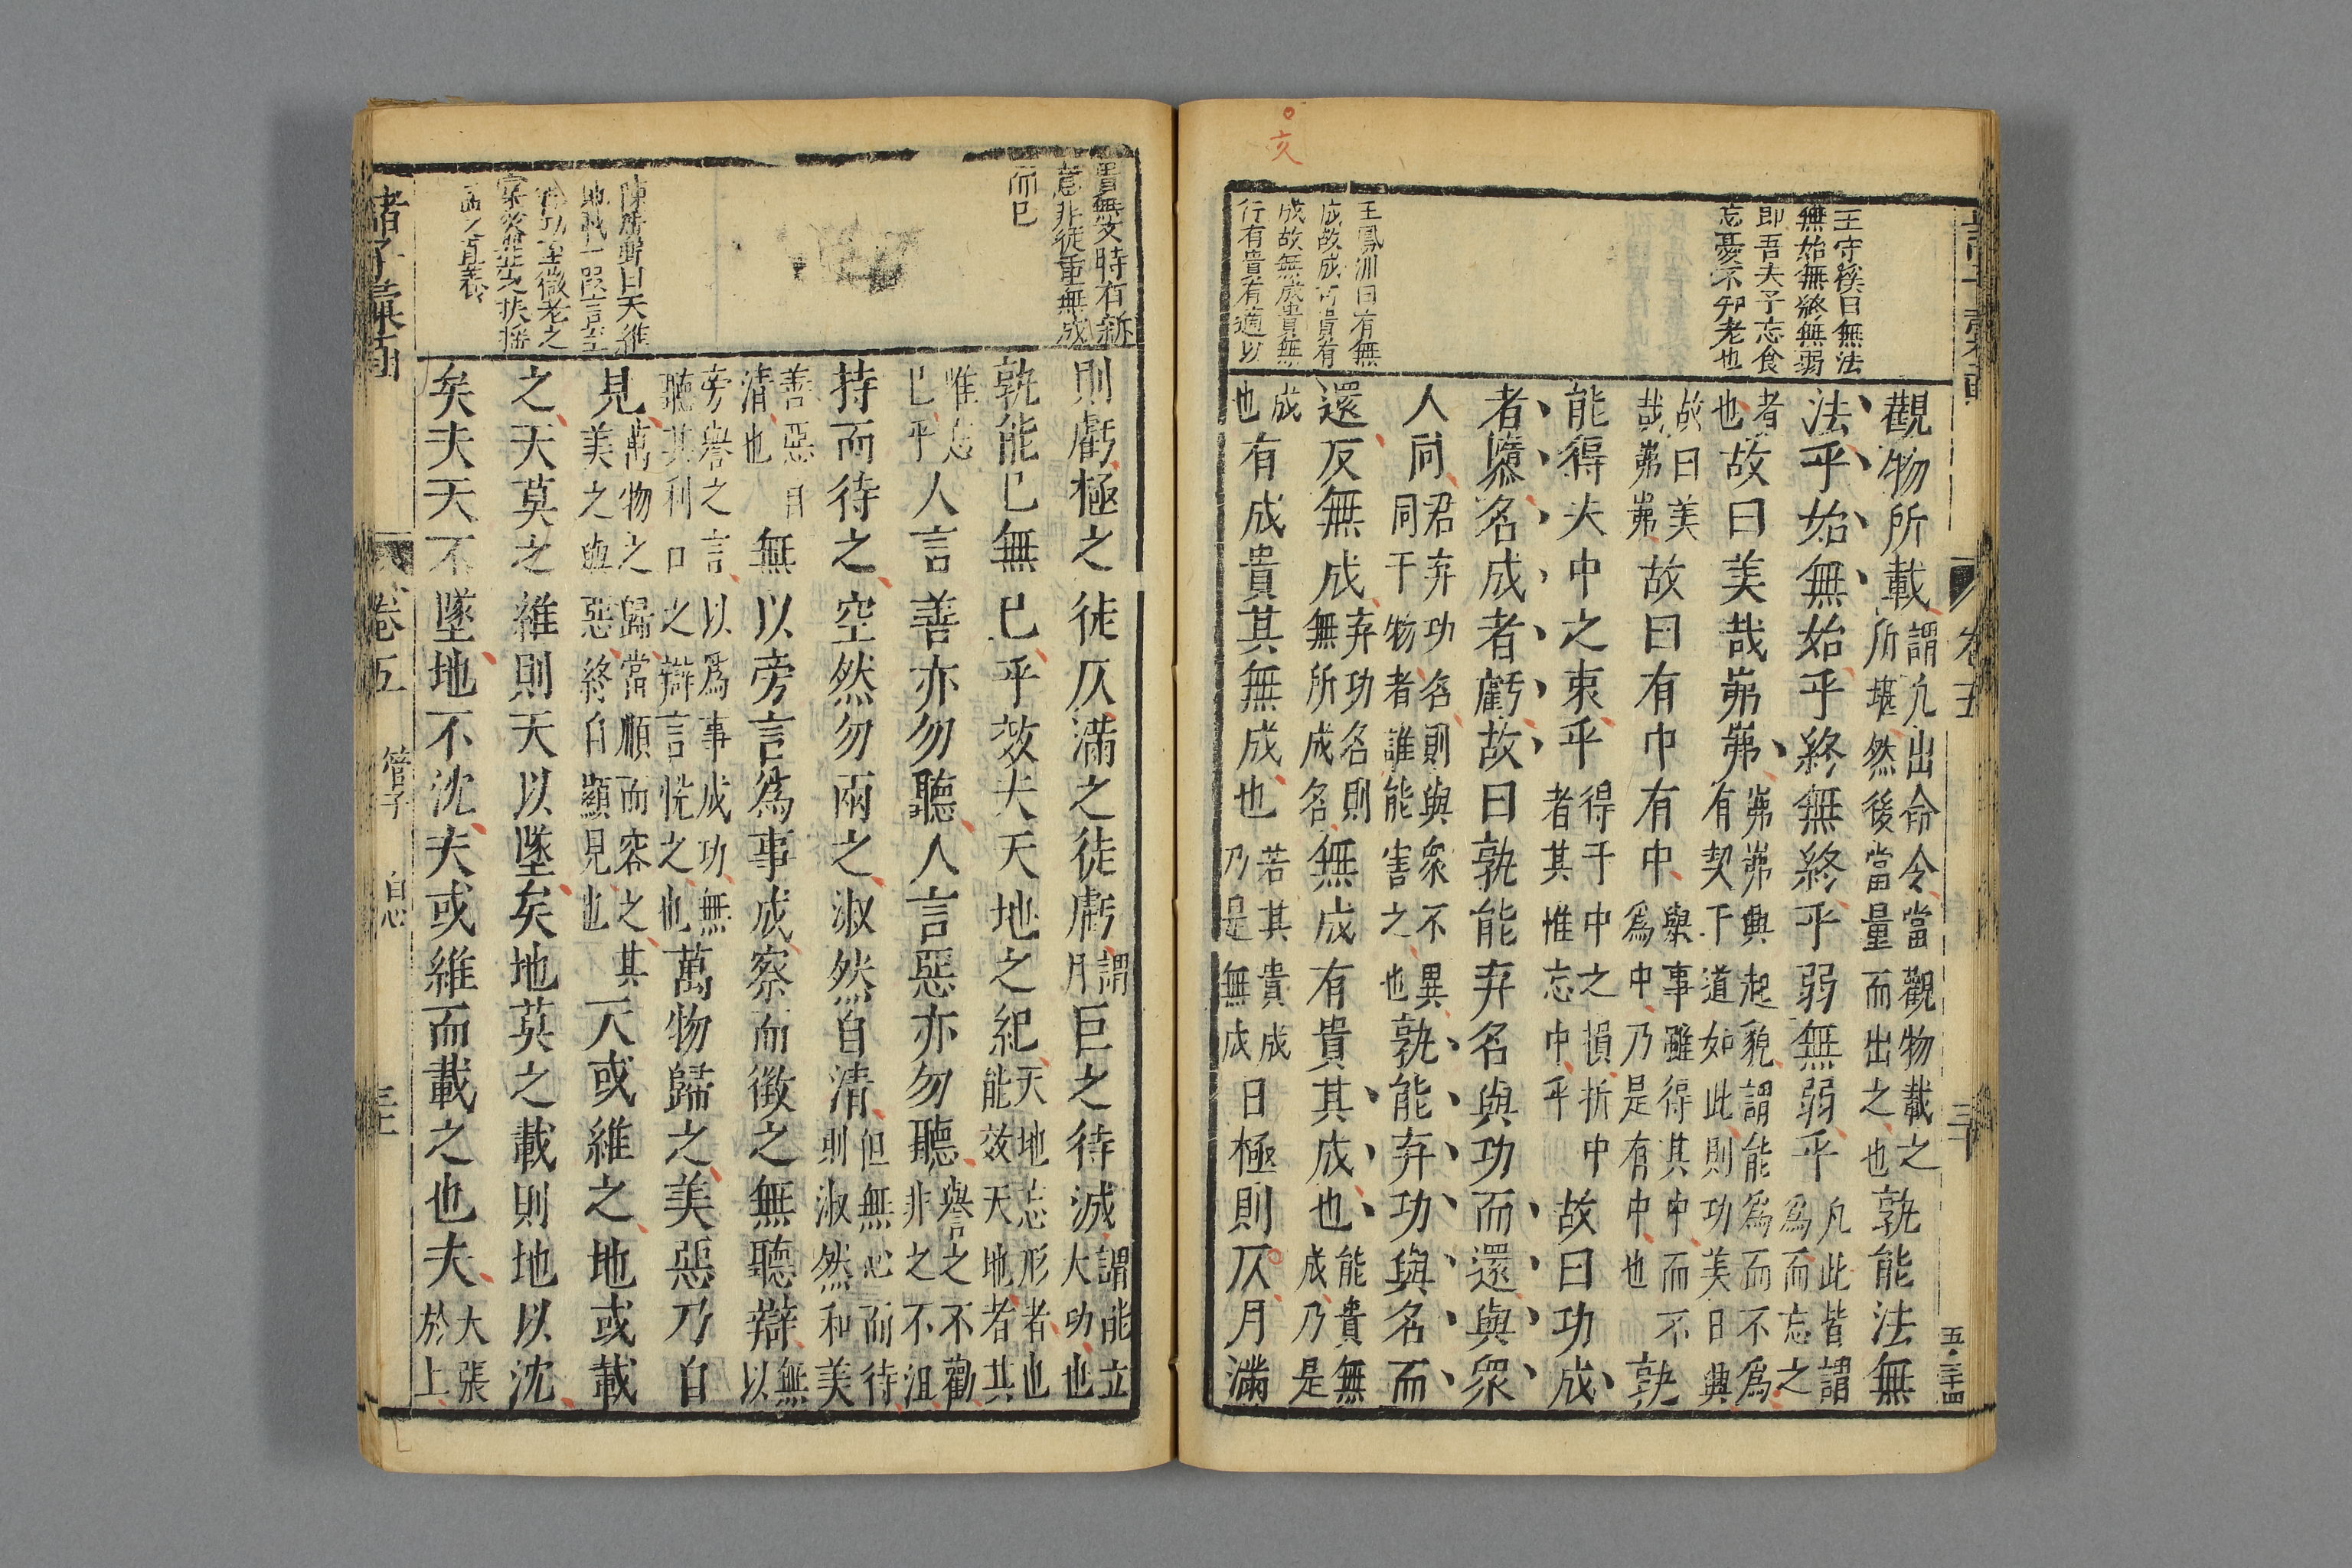 亥
王守溪曰無法
無始無終無弱
即吾夫子忘食
忘憂不知老也
王鳳洲曰有無
成故成可貴有
成故無成貴無
行有貴有適以
觀物所載謂凡出命令當觀物載之所堪然後當量而出之也孰能法無
法乎始無始乎終無終乎弱無弱乎凡此皆謂為而忘之
者也故曰美哉岪岪岪岪興起貌謂能為而不為有契于道如此則功美日興
故曰美哉岪岪故曰有中有中舉事雖得其中而不為中乃是有中也孰
能得夫中之衷乎得于中之損折中者其惟忘中乎故曰功成
者隳名成者虧故曰孰能弃名與功而還與眾
人同君弃功名則與衆不異同于物者誰能害之也孰能弃功與名而
還反無成弃功名則無所成名無成有貴其成也能貴無成乃是
成也有成貴其無成也若其貴成乃是無成日極則仄月滿
卷五
三十
五·三十四
胃無文時有新
意非徒重無成
而已
地載一段言至
則虧極之徒仄滿之徒虧謂月巨之待滅謂能立大功也
孰能已無已乎效夫天地之紀天地忘形者也能效天地者其
惟忘已乎人言善亦勿聽人言惡亦勿聽譽之不勸非之不沮
持而待之空然勿兩之淑然自清但無心而待則淑然和美
善惡自清也無以旁言為事成察而徵之無聽辯無以
旁譽之言以為事成功無聽其利口之辯言恍之也萬物歸之美惡乃自
見萬物之歸當順而容之其美之與惡終自顯見也天或維之地或載
之天莫之維則天以墜矣地莫之載則地以沈
矣夫天不墜地不沈夫或維而載之也夫大張於上
卷五
管子
白心
三十一